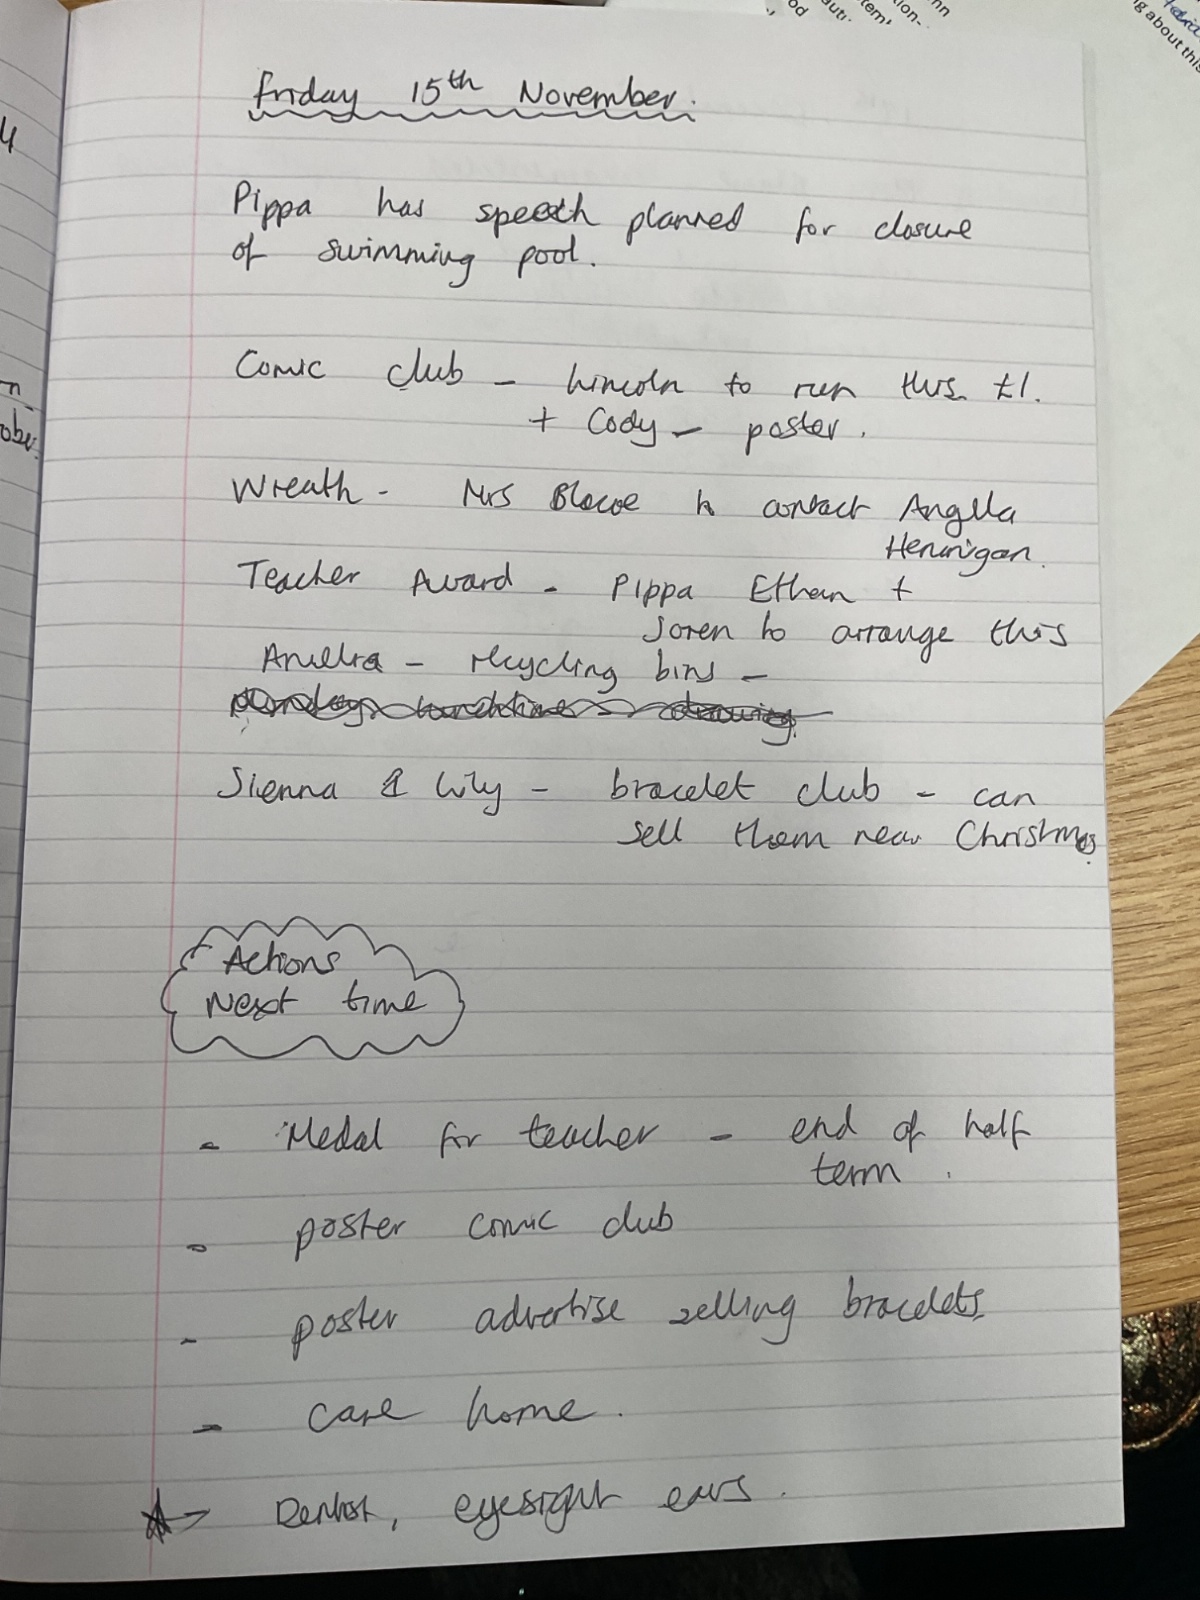 Friday 15th November.
Pippa has speech planned for closure
of swimming pool.
Comic club - Lincoln to run this. £1.
+ Cody - poster.
Wreath - Mrs to contact Angela
Hennigan.
Teacher Award - Pippa Ethan +
Joren to arrange this
Amelia - recycling bins -
Sienna & Lily - bracelet club - can
sell them near Christmas.
Actions
Next time
- Medal for teacher - end of half
term.
- poster comic club
- poster advertise selling bracelets.
- care home.
- Dentist, eyesight ears.